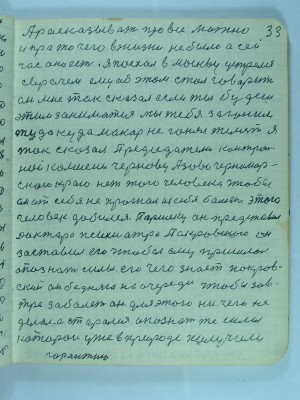 33
А рассказыват про все можно
и про то чего в жизни не было а сей
час он есть. я поехал в москву
с врачем ему об этом стал говорит
он мне так сказал если ты будеш
этим заниматся мы тебя загоним
туда куда макар не гонял телят я
так сказал Председателю контрол
ной комисии Чернову Азово черномор
скому краю нет того человека чтобы
он от себя не прогнал и себя болел этого
человек добился. он представил
доктаро психиатро Покровского он
заставил его чтобы ему пришлося
опознат силы его чего знает покров
ский он бедняга на очереди чтобы зав
тре заболет он для этого ни чего не
делал а старался опознат те силы
которои уже в природе получили
гарантию